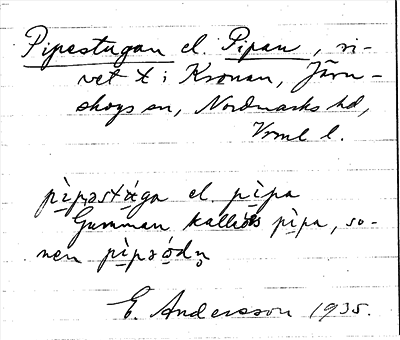 Pipestugan el. Pipan, ri-
vet t i Kronan, Järn-
skogs sn, Nordmarks hd,
Vrml l.
pìpəstʉ̀ga el. pìpa
Gumman kallades pìpa, so-
nen pìpəódṇ
E. Andersson 1935.